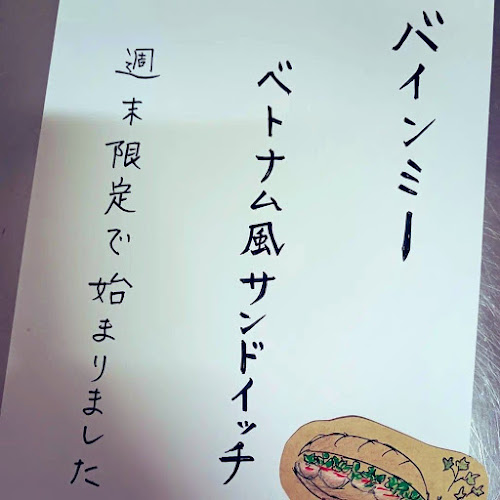 バインミー
ベトナム風サンドイッチ
週末限定で始まりました